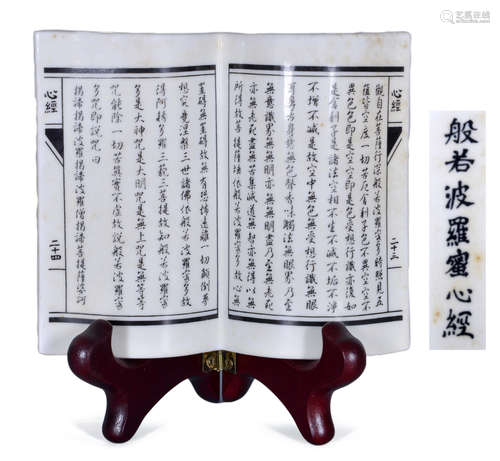 艺狐在线
般若波羅蜜心經
心經
二十三
觀自在菩薩行深般若波羅蜜多時照見五
蘊皆空度一切苦厄舍利子色不異空空不
異色色即是空空即是色受想行識亦復如
是舍利子是諸法空相不生不滅不垢不淨
不增不減是故空中無色無受想行識無眼
耳鼻舌身意無色聲香味觸法無眼界乃至
無意識界無無明亦無無明盡乃至無老死
亦無老死盡無苦集滅道無智亦無得以無
所得故菩提薩埵依般若波羅蜜多故心無
罣礙無罣礙故無有恐怖遠離一切顛倒夢
想究竟涅槃三世諸佛依般若波羅蜜多故
得阿耨多羅三藐三菩提故知般若波羅蜜
多是大神咒是大明咒是無上咒是無等等
咒能除一切苦真實不虛故說般若波羅蜜
多咒即說咒曰
揭諦揭諦波羅揭諦波羅僧揭諦菩提薩婆訶
心經
二十四